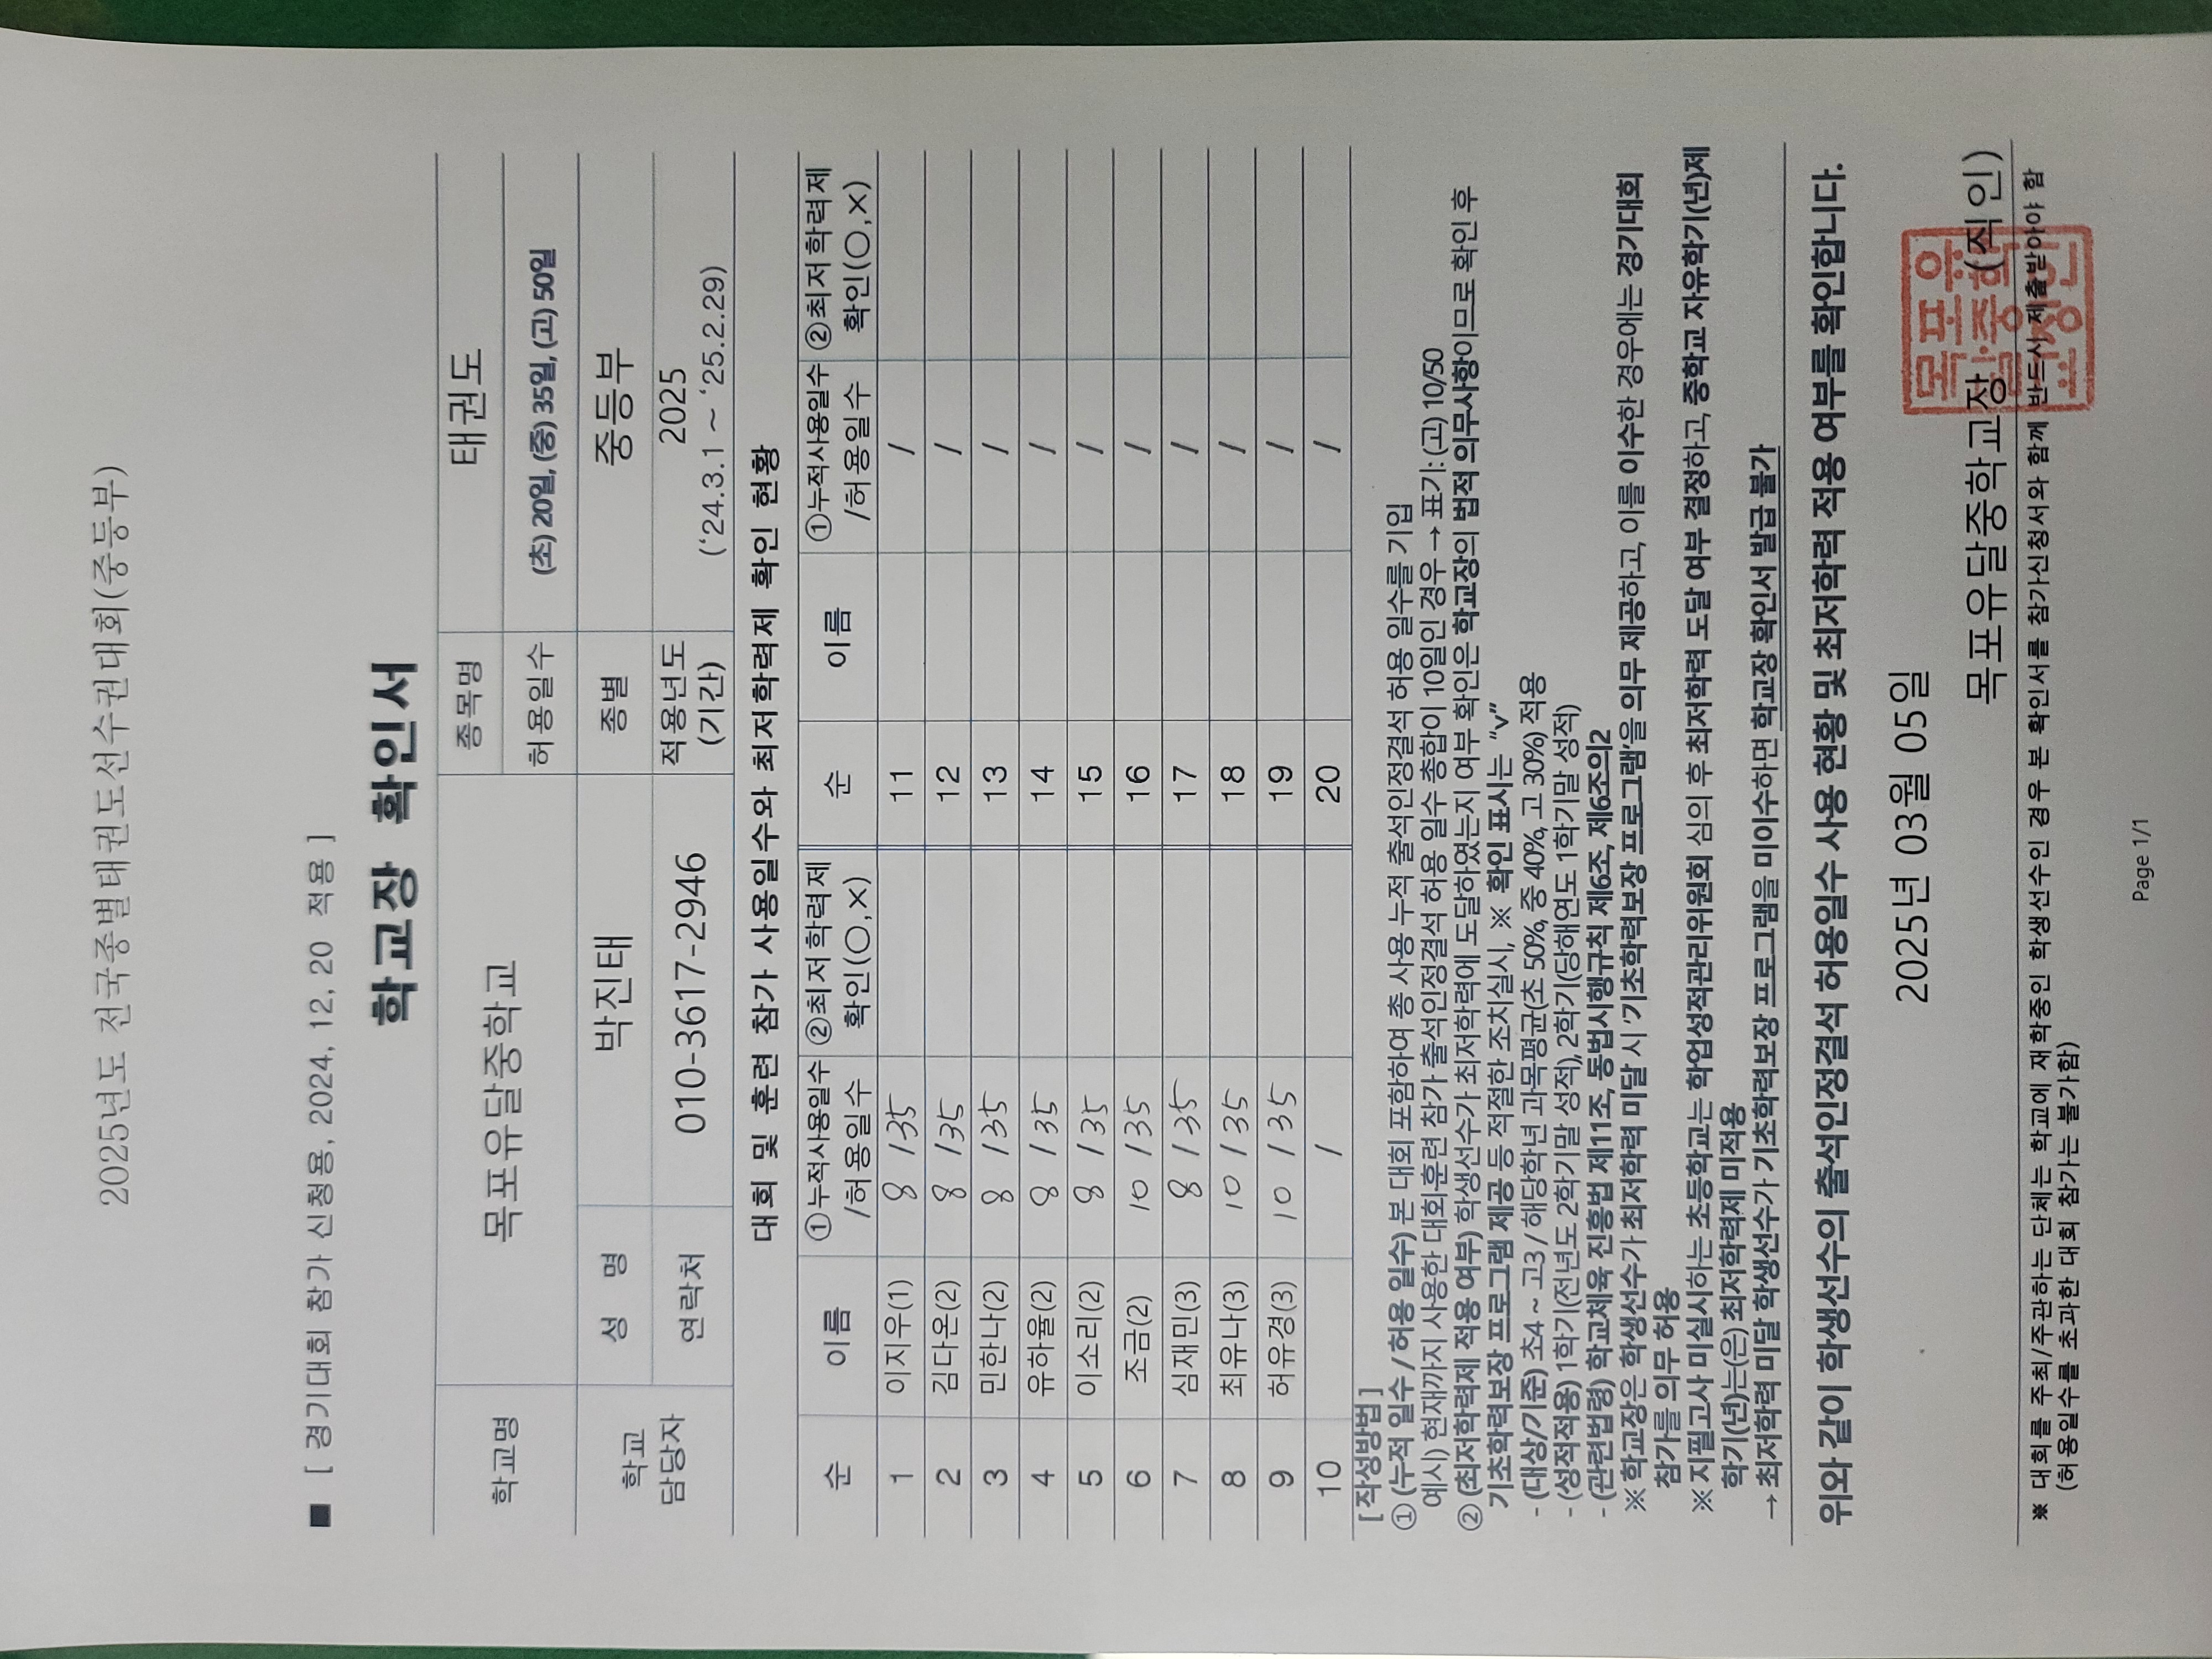 2025년도 전국종별태권도선수권대회(중등부)
■ [ 경기대회 참가 신청용, 2024, 12, 20 적용 ]
학교장 확인서
학교명 목포유달중학교 종목명 태권도
허용일수 (초) 20일, (중) 35일, (고) 50일
학교 담당자 성 명 박진태 종별 중등부
연락처 010-3617-2946 적용년도 (기간) 2025 ('24.3.1 ~ '25.2.29)
대회 및 훈련 참가 사용일수와 최저학력제 확인 현황
순 이름 ①누적사용일수 /허용일수 ②최저학력제 확인(○,×) 순 이름 ①누적사용일수 /허용일수 ②최저학력제 확인(○,×)
1 이지우(1) 8 /35 11 /
2 김다온(2) 8 /35 12 /
3 민한나(2) 8 /35 13 /
4 유하율(2) 8 /35 14 /
5 이소리(2) 8 /35 15 /
6 조금(2) 10 /35 16 /
7 심재민(3) 8 /35 17 /
8 최유나(3) 10 /35 18 /
9 허유경(3) 10 /35 19 /
10 / 20 /
[ 작성방법 ]
① (누적 일수 / 허용 일수) 본 대회 포함하여 총 사용 누적 출석인정결석 허용 일수를 기입
예시) 현재까지 사용한 대회훈련 참가 출석인정결석 허용 일수 총합이 10일인 경우 → 표기: (고) 10/50
② (최저학력제 적용 여부) 학생선수가 최저학력에 도달하였는지 여부 확인은 학교장의 법적 의무사항이므로 확인 후
기초학력보장 프로그램 제공 등 적절한 조치실시, ※ 확인 표시는 "v"
- (대상/기준) 초4 ~ 고3 / 해당학년 과목평균(초 50%, 중 40%, 고 30%) 적용
- (성적적용) 1학기(전년도 2학기말 성적), 2학기(당해연도 1학기말 성적)
- (관련법령) 학교체육 진흥법 제11조, 동법시행규칙 제6조, 제6조의2
※ 학교장은 학생선수가 최저학력 미달 시 '기초학력보장 프로그램'을 의무 제공하고, 이를 이수한 경우에는 경기대회
참가를 의무 허용
※ 지필고사 미실시하는 초등학교는 학업성적관리위원회 심의 후 최저학력 도달 여부 결정하고, 중학교 자유학기(년)제
학기(년)는(은) 최저학력제 미적용
→ 최저학력 미달 학생선수가 기초학력보장 프로그램을 미이수하면 학교장 확인서 발급 불가
위와 같이 학생선수의 출석인정결석 허용일수 사용 현황 및 최저학력 적용 여부를 확인합니다.
2025년 03월 05일
목포유달중학교장 (직인)
목포유
달중학
교장인
※ 대회를 주최/주관하는 단체는 학교에 재학중인 학생선수인 경우 본 확인서를 참가신청서와 함께 반드시 제출받아야 함
(허용일수를 초과한 대회 참가는 불가함)
Page 1/1